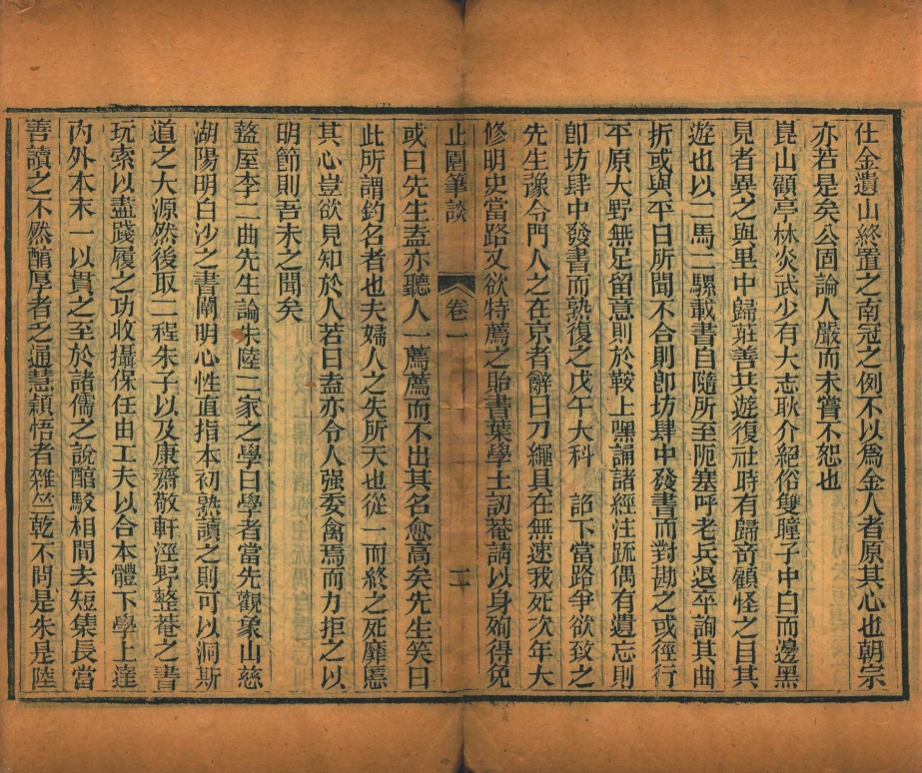 仕金遺山終置之南冠之例不以爲金人者原其心也朝宗
亦若是矣公固論人嚴而未嘗不恕也
崑山顧亭林炎武少有大志耿介絕俗雙瞳子中白而邊黑
見者異之與里中歸莊善共遊復社時有歸奇顧怪之目其
遊也以二馬二騾載書自隨所至阨塞呼老兵退卒詢其曲
折或與平日所聞不合則卽坊肆中發書而對勘之或徑行
平原大野無足留意則於鞍上嘿誦諸經注疏偶有遺忘則
卽坊肆中發書而熟復之戊午大科 詔下當路爭欲致之
先生豫令門人之在京者辭曰刀繩具在無速我死次年大
修明史當路又欲特薦之貽書葉學士訒菴請以身殉得免
止園筆談 卷一 二十
或曰先生盍亦聽人一薦薦而不出其名愈高矣先生笑曰
此所謂釣名者也夫婦人之失所天也從一而終之死靡慝
其心豈欲見知於人若曰盍亦令人強委禽焉而力拒之以
明節則吾未之聞矣
盩厔李二曲先生論朱陸二家之學曰學者當先觀象山慈
湖陽明白沙之書闡明心性直指本初熟讀之則可以洞斯
道之大源然後取二程朱子以及康齋敬軒涇野整菴之書
玩索以盡踐履之功收攝保任由工夫以合本體下學上達
內外本末一以貫之至於諸儒之說醇駁相間去短集長當
善讀之不然醇厚者乏通慧穎悟者雜竺乾不問是朱是陸